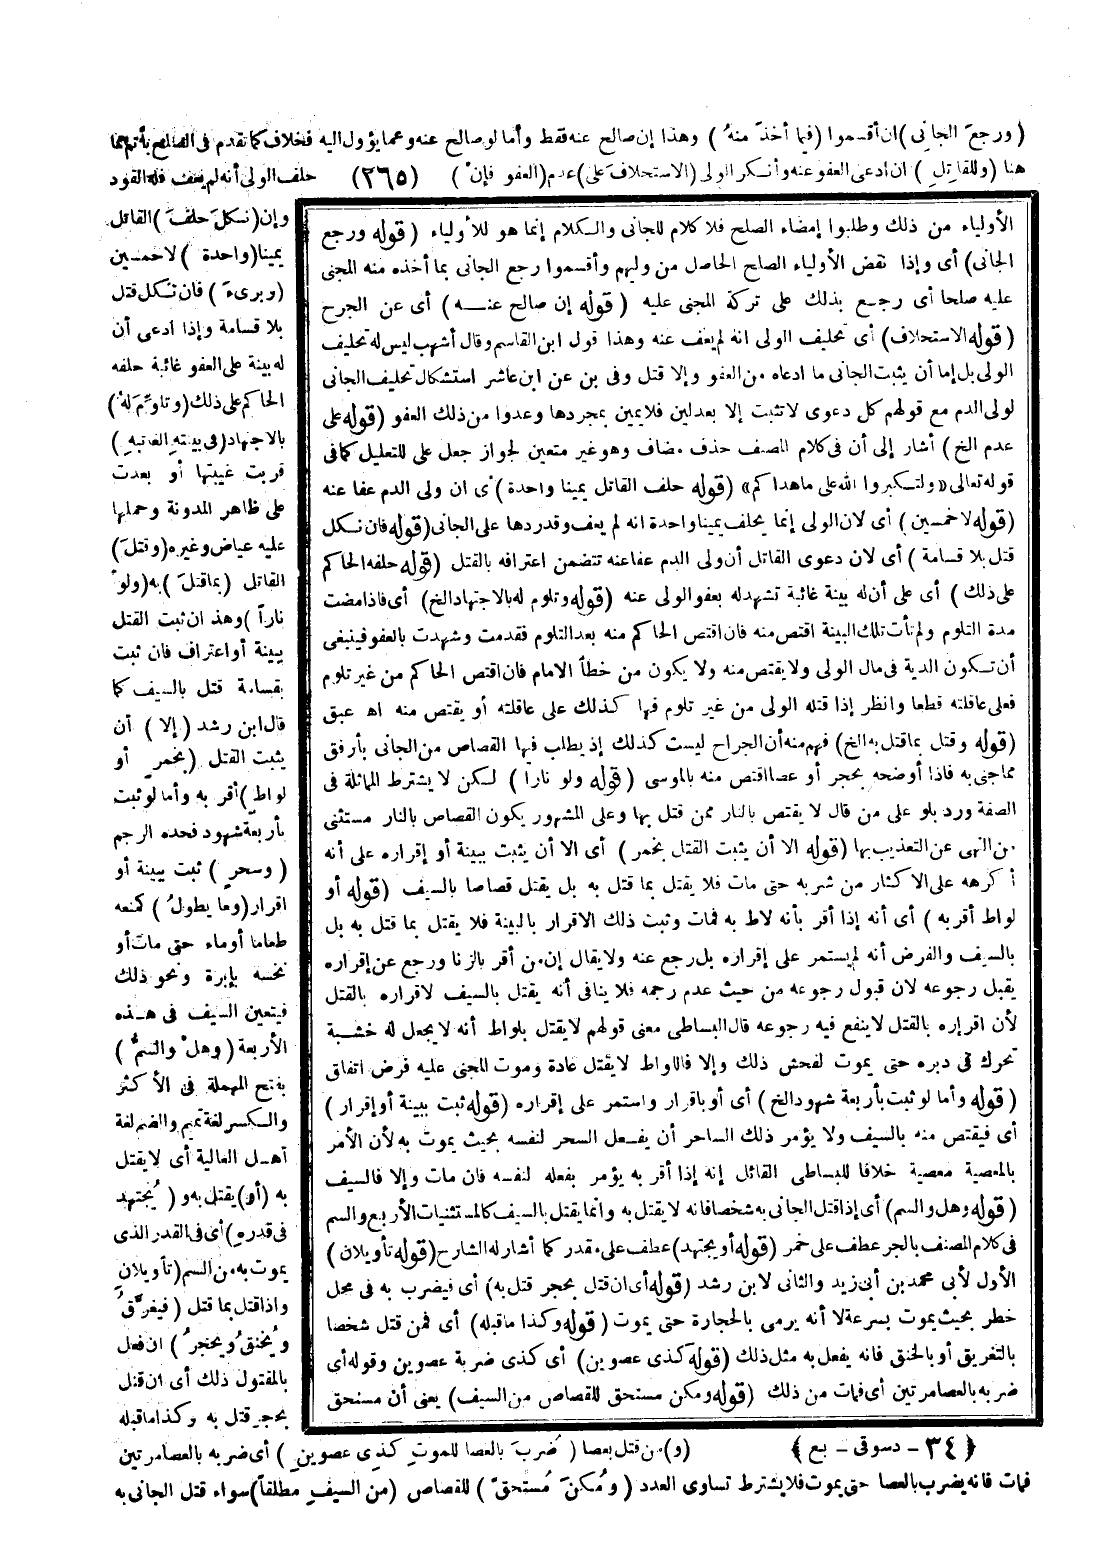 ( ورجعَ الجانِى ) ان أقسموا ( فيما أخذَ منهُ ) وهذا إن صالح عنه فقط وأما لو صالح عنه وعما يؤول اليه فخلاف كما تقدم فى الصلح بأتم مما
هنا ( وللقاتِلِ ) ان ادعى العفو عنه وأنكر الولى ( الاستحلافُ على ) عدم ( العفو فإنْ ) (٢٦٥) حلف الولى أنه لم يعف فله القود
وإن ( نكلَ حلفَ ) القاتل
يمينا ( واحدة ) لا خمسين
( وبرىءَ ) فان نكل قتل
بلا قسامة وإذا ادعى أن
له بينة على العفو غائبة حلفه
الحاكم على ذلك ( وتلوِّمَ لهُ )
بالاجتهاد ( فى بينتهِ الغائبهِ )
قربت غيبتها أو بعدت
على ظاهر المدونة وحملها
عليه عياض وغيره ( وقتلَ )
القاتل ( بما قتلَ ) به ( ولو
ناراً ) وهذا ان ثبت القتل
ببينة أو اعتراف فان ثبت
بقسامة قتل بالسيف كما
قال ابن رشد ( إلا ) أن
يثبت القتل ( بخمرٍ أو
لواطٍ ) أقر به وأما لو ثبت
بأربعة شهود فحده الرجم
( وسحرٍ ) ثبت ببينة أو
اقرار ( وما يطولُ ) كمنعه
طعاما أو ماء حتى مات أو
نخسه بإبرة ونحو ذلك
فيتعين السيف فى هذه
الأربعة ( وهلْ والسمُّ )
بفتح المهملة فى الأكثر
والكسر لغة تميم والضم لغة
أهل العالية أى لا يقتل
به ( أو ) يقتل به و ( يُجتهد
فى قدرهِ ) أى فى القدر الذى
يموت به من السم ( تأويلانِ
و ) اذا قتل بما قتل ( فيغرَّقُ
ويُخنقُ ويحجرُ ) ان فعل
بالمقتول ذلك أى ان قتل
بحجر قتل به وكذا ما قبله
الأولياء من ذلك وطلبوا إمضاء الصلح فلا كلام للجانى والكلام إنما هو للأولياء ( قوله ورجع
الجانى ) أى وإذا نقض الأولياء الصلح الحاصل من وليهم وأقسموا رجع الجانى بما أخذه منه المجنى
عليه صلحا أى رجع بذلك على تركة المجنى عليه ( قوله إن صالح عنه ) أى عن الجرح
( قوله الاستحلاف ) أى تحليف الولى انه لم يعف عنه وهذا قول ابن القاسم وقال أشهب ليس له تحليف
الولى بل إما أن يثبت الجانى ما ادعاه من العفو وإلا قتل وفى بن عن ابن عاشر استشكال تحليف الجانى
لولى الدم مع قولهم كل دعوى لا تثبت إلا بعدلين فلا يمين بمجردها وعدوا من ذلك العفو ( قوله على
عدم الخ ) أشار إلى أن فى كلام المصنف حذف مضاف وهو غير متعين لجواز جعل على للتعليل كما فى
قوله تعالى «ولتكبروا الله على ما هداكم» ( قوله حلف القاتل يمينا واحدة ) أى ان ولى الدم عفا عنه
( قوله لا خمسين ) أى لان الولى إنما يحلف يمينا واحدة انه لم يعف وقد ردها على الجانى ( قوله فان نكل
قتل بلا قسامة ) أى لان دعوى القاتل أن ولى الدم عفا عنه تتضمن اعترافه بالقتل ( قوله حلفه الحاكم
على ذلك ) أى على أن له بينة غائبة تشهد له بعفو الولى عنه ( قوله وتلوم له بالاجتهاد الخ ) أى فاذا مضت
مدة التلوم ولم تأت تلك البينة اقتص منه فان اقتص الحاكم منه بعد التلوم فقدمت وشهدت بالعفو فينبغى
أن تكون الدية فى مال الولى ولا يقتص منه ولا يكون من خطأ الامام فان اقتص الحاكم من غير تلوم
فعلى عاقلته قطعا وانظر إذا قتله الولى من غير تلوم فيها كذلك على عاقلته أو يقتص منه اه عبق
( قوله وقتل بما قتل به الخ ) فهم منه أن الجراح ليست كذلك إذ يطلب فيها القصاص من الجانى بأرفق
مما جنى به فاذا أوضحه بحجر أو عصا اقتص منه بالموسى ( قوله ولو نارا ) لكن لا يشترط المماثلة فى
الصفة ورد بلو على من قال لا يقتص بالنار ممن قتل بها وعلى المشهور يكون القصاص بالنار مستثنى
من النهى عن التعذيب بها ( قوله الا أن يثبت القتل بخمر ) أى الا أن يثبت ببينة أو إقراره على أنه
أكرهه على الاكثار من شربه حتى مات فلا يقتل بما قتل به بل يقتل قصاصا بالسيف ( قوله أو
لواط أقر به ) أى أنه إذا أقر بأنه لاط به فمات وثبت ذلك الاقرار بالبينة فلا يقتل بما قتل به بل
بالسيف والفرض أنه لم يستمر على إقراره بل رجع عنه ولا يقال إن من أقر بالزنا ورجع عن إقراره
يقبل رجوعه لان قبول رجوعه من حيث عدم رجمه فلا ينافى أنه يقتل بالسيف لاقراره بالقتل
لأن اقراره بالقتل لا ينفع فيه رجوعه قال البساطى معنى قولهم لا يقتل بلواط أنه لا يجعل له خشبة
تحرك فى دبره حتى يموت لفحش ذلك وإلا فاللواط لا يقتل عادة وموت المجنى عليه فرض اتفاق
( قوله وأما لو ثبت بأربعة شهود الخ ) أى أو باقرار واستمر على إقراره ( قوله ثبت ببينة أو إقرار )
أى فيقتص منه بالسيف ولا يؤمر ذلك الساحر أن يفعل السحر لنفسه بحيث يموت به لأن الأمر
بالمعصية معصية خلافا للبساطى القائل إنه إذا أقر به يؤمر بفعله لنفسه فان مات وإلا فالسيف
( قوله وهل والسم ) أى إذا قتل الجانى به شخصا فانه لا يقتل به وانما يقتل بالسيف كالمستثنيات الأربع والسم
فى كلام المصنف بالجر عطف على خمر ( قوله أو يجتهد ) عطف على مقدر كما أشار له الشارح ( قوله تأويلان )
الأول لأبى محمد بن أبى زيد والثانى لابن رشد ( قوله أى ان قتل بحجر قتل به ) أى فيضرب به فى محل
خطر بحيث يموت بسرعة لا أنه يرمى بالحجارة حتى يموت ( قوله وكذا ما قبله ) أى فمن قتل شخصا
بالتغريق أو بالخنق فانه يفعل به مثل ذلك ( قوله كذى عصوين ) أى كذى ضربة عصوين وقوله أى
ضربه بالعصا مرتين أى فمات من ذلك ( قوله ومكن مستحق للقصاص من السيف ) يعنى أن مستحق
﴿ ٣٤ - دسوقى - بع ﴾
( و ) من قتل بعصا ( ضُربَ بالعصا للموتِ كذِى عصوينِ ) أى ضربه بالعصا مرتين
فمات فانه يضرب بالعصا حتى يموت فلا يشترط تساوى العدد ( ومُكنَ مُستحقٌ ) للقصاص ( من السيفِ مطلقاً ) سواء قتل الجانى به